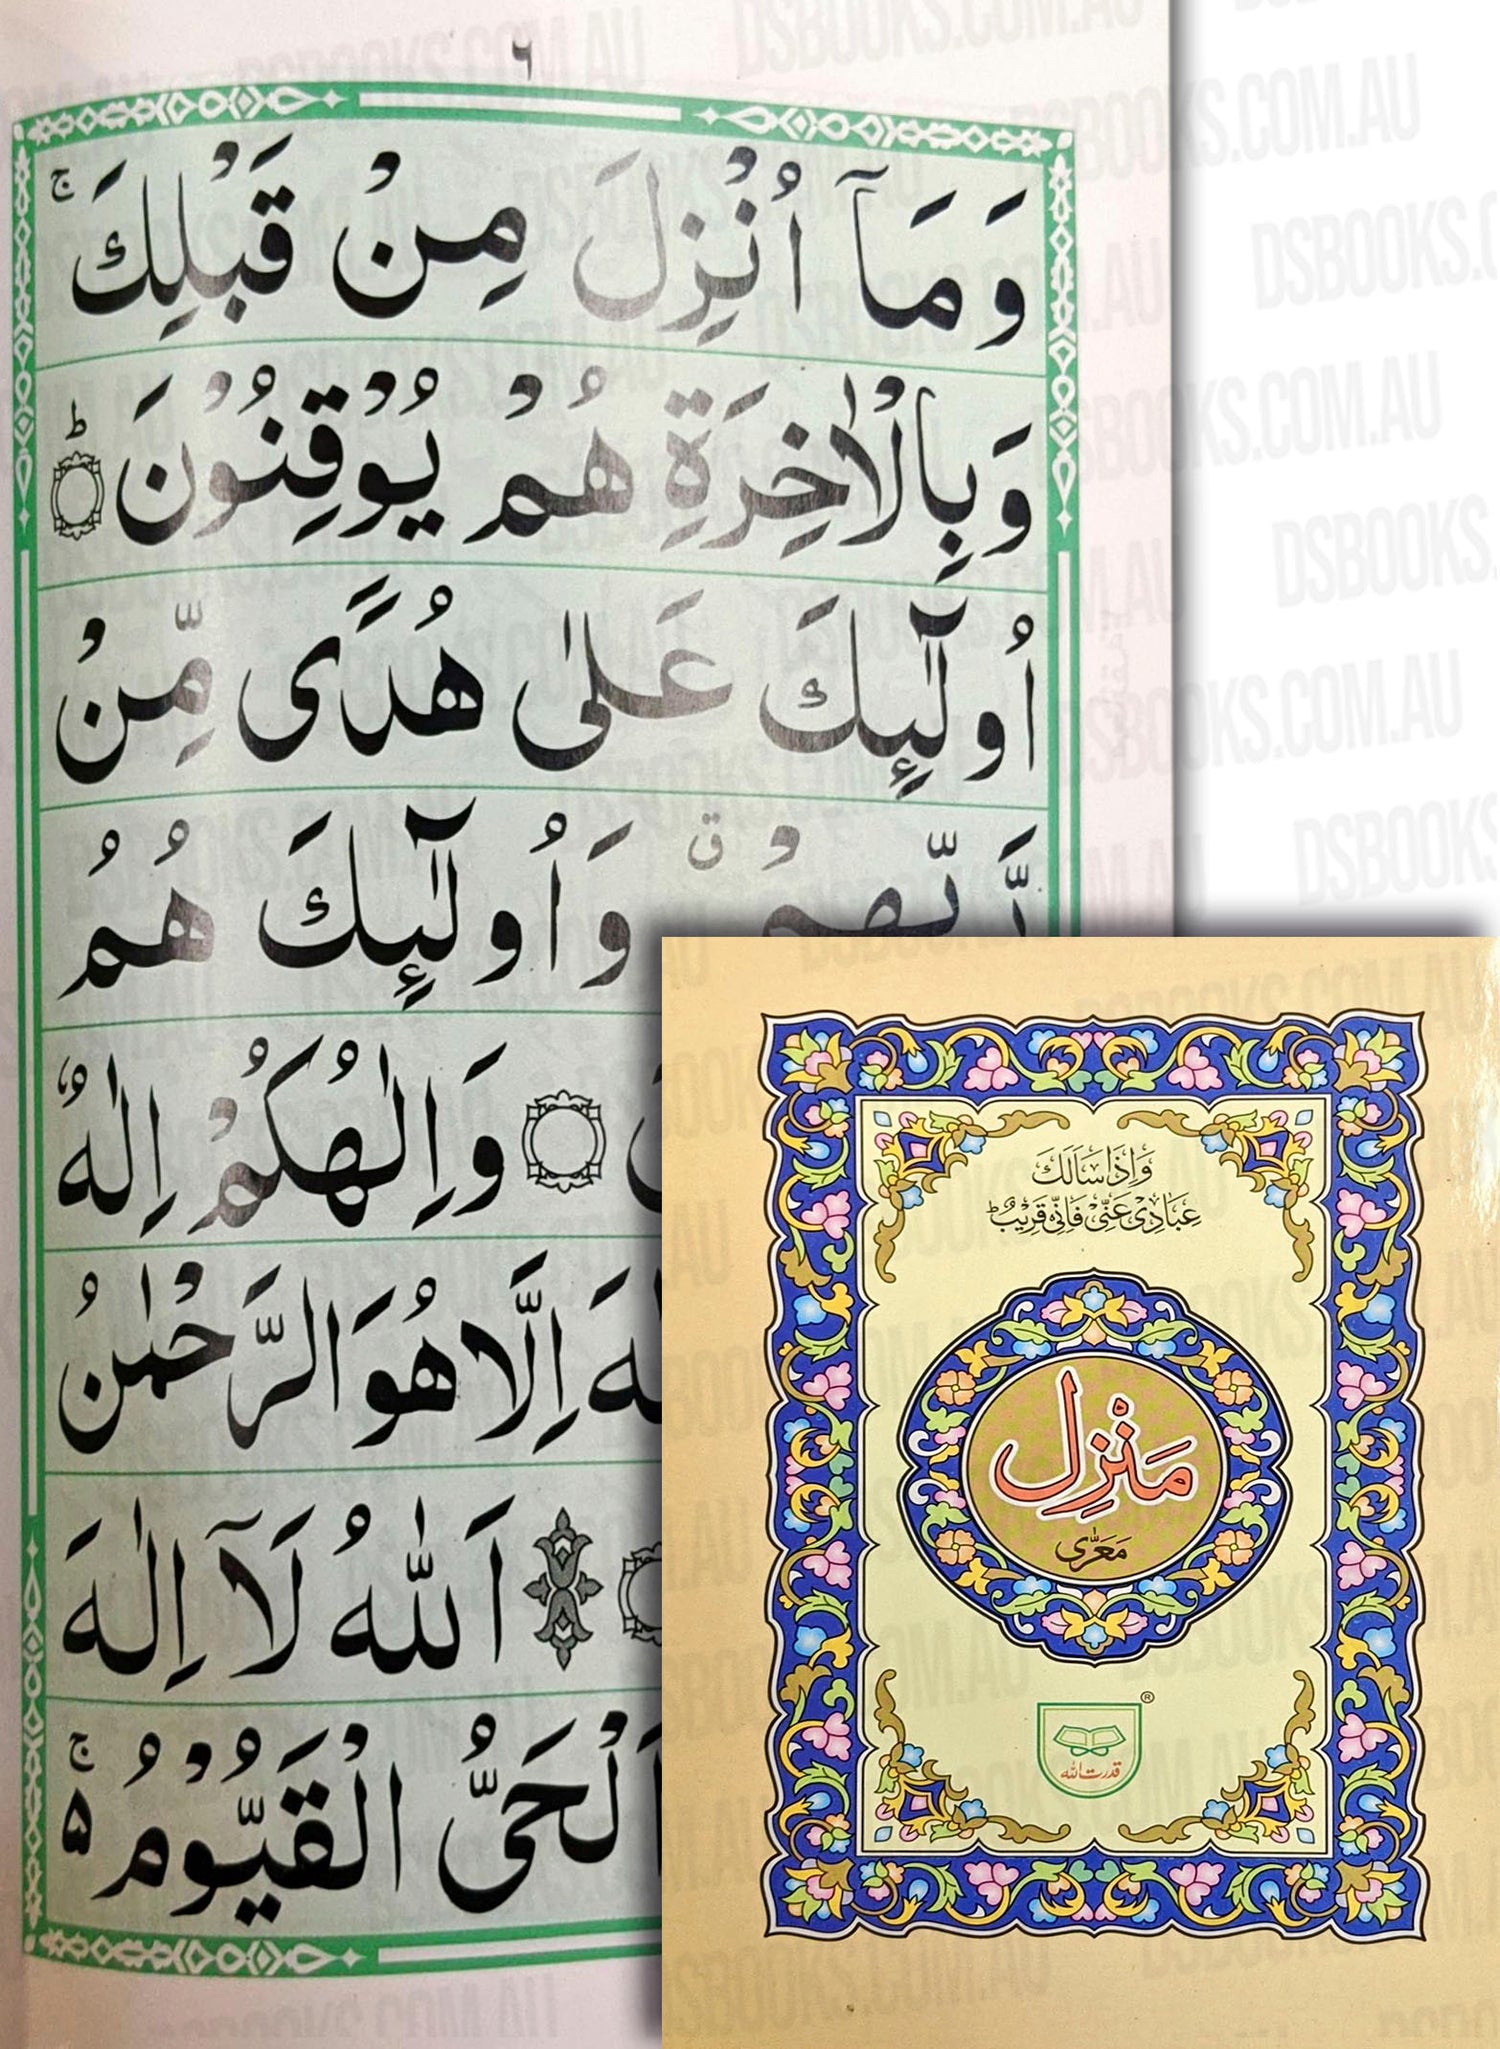 ٦
وَمَآ اُنْزِلَ مِنْ قَبْلِكَ ۚ
وَبِالْاٰخِرَةِ هُمْ يُوْقِنُوْنَ ؕ
اُولٰٓئِكَ عَلٰى هُدًى مِّنْ
رَّبِّهِمْ ۗ وَاُولٰٓئِكَ هُمُ
وَاِلٰهُكُمْ اِلٰهٌ
اِلَّا هُوَ الرَّحْمٰنُ
اَللّٰهُ لَآ اِلٰهَ
اَلْحَىُّ الْقَيُّوْمُ ۚ ۵
وَاِذَا سَاَلَكَ
عِبَادِىْ عَنِّىْ فَاِنِّىْ قَرِيْبٌ ؕ
مَنْزِل
مَعَرّٰى
®
قدرت اللہ
DSBOOKS.COM.AU